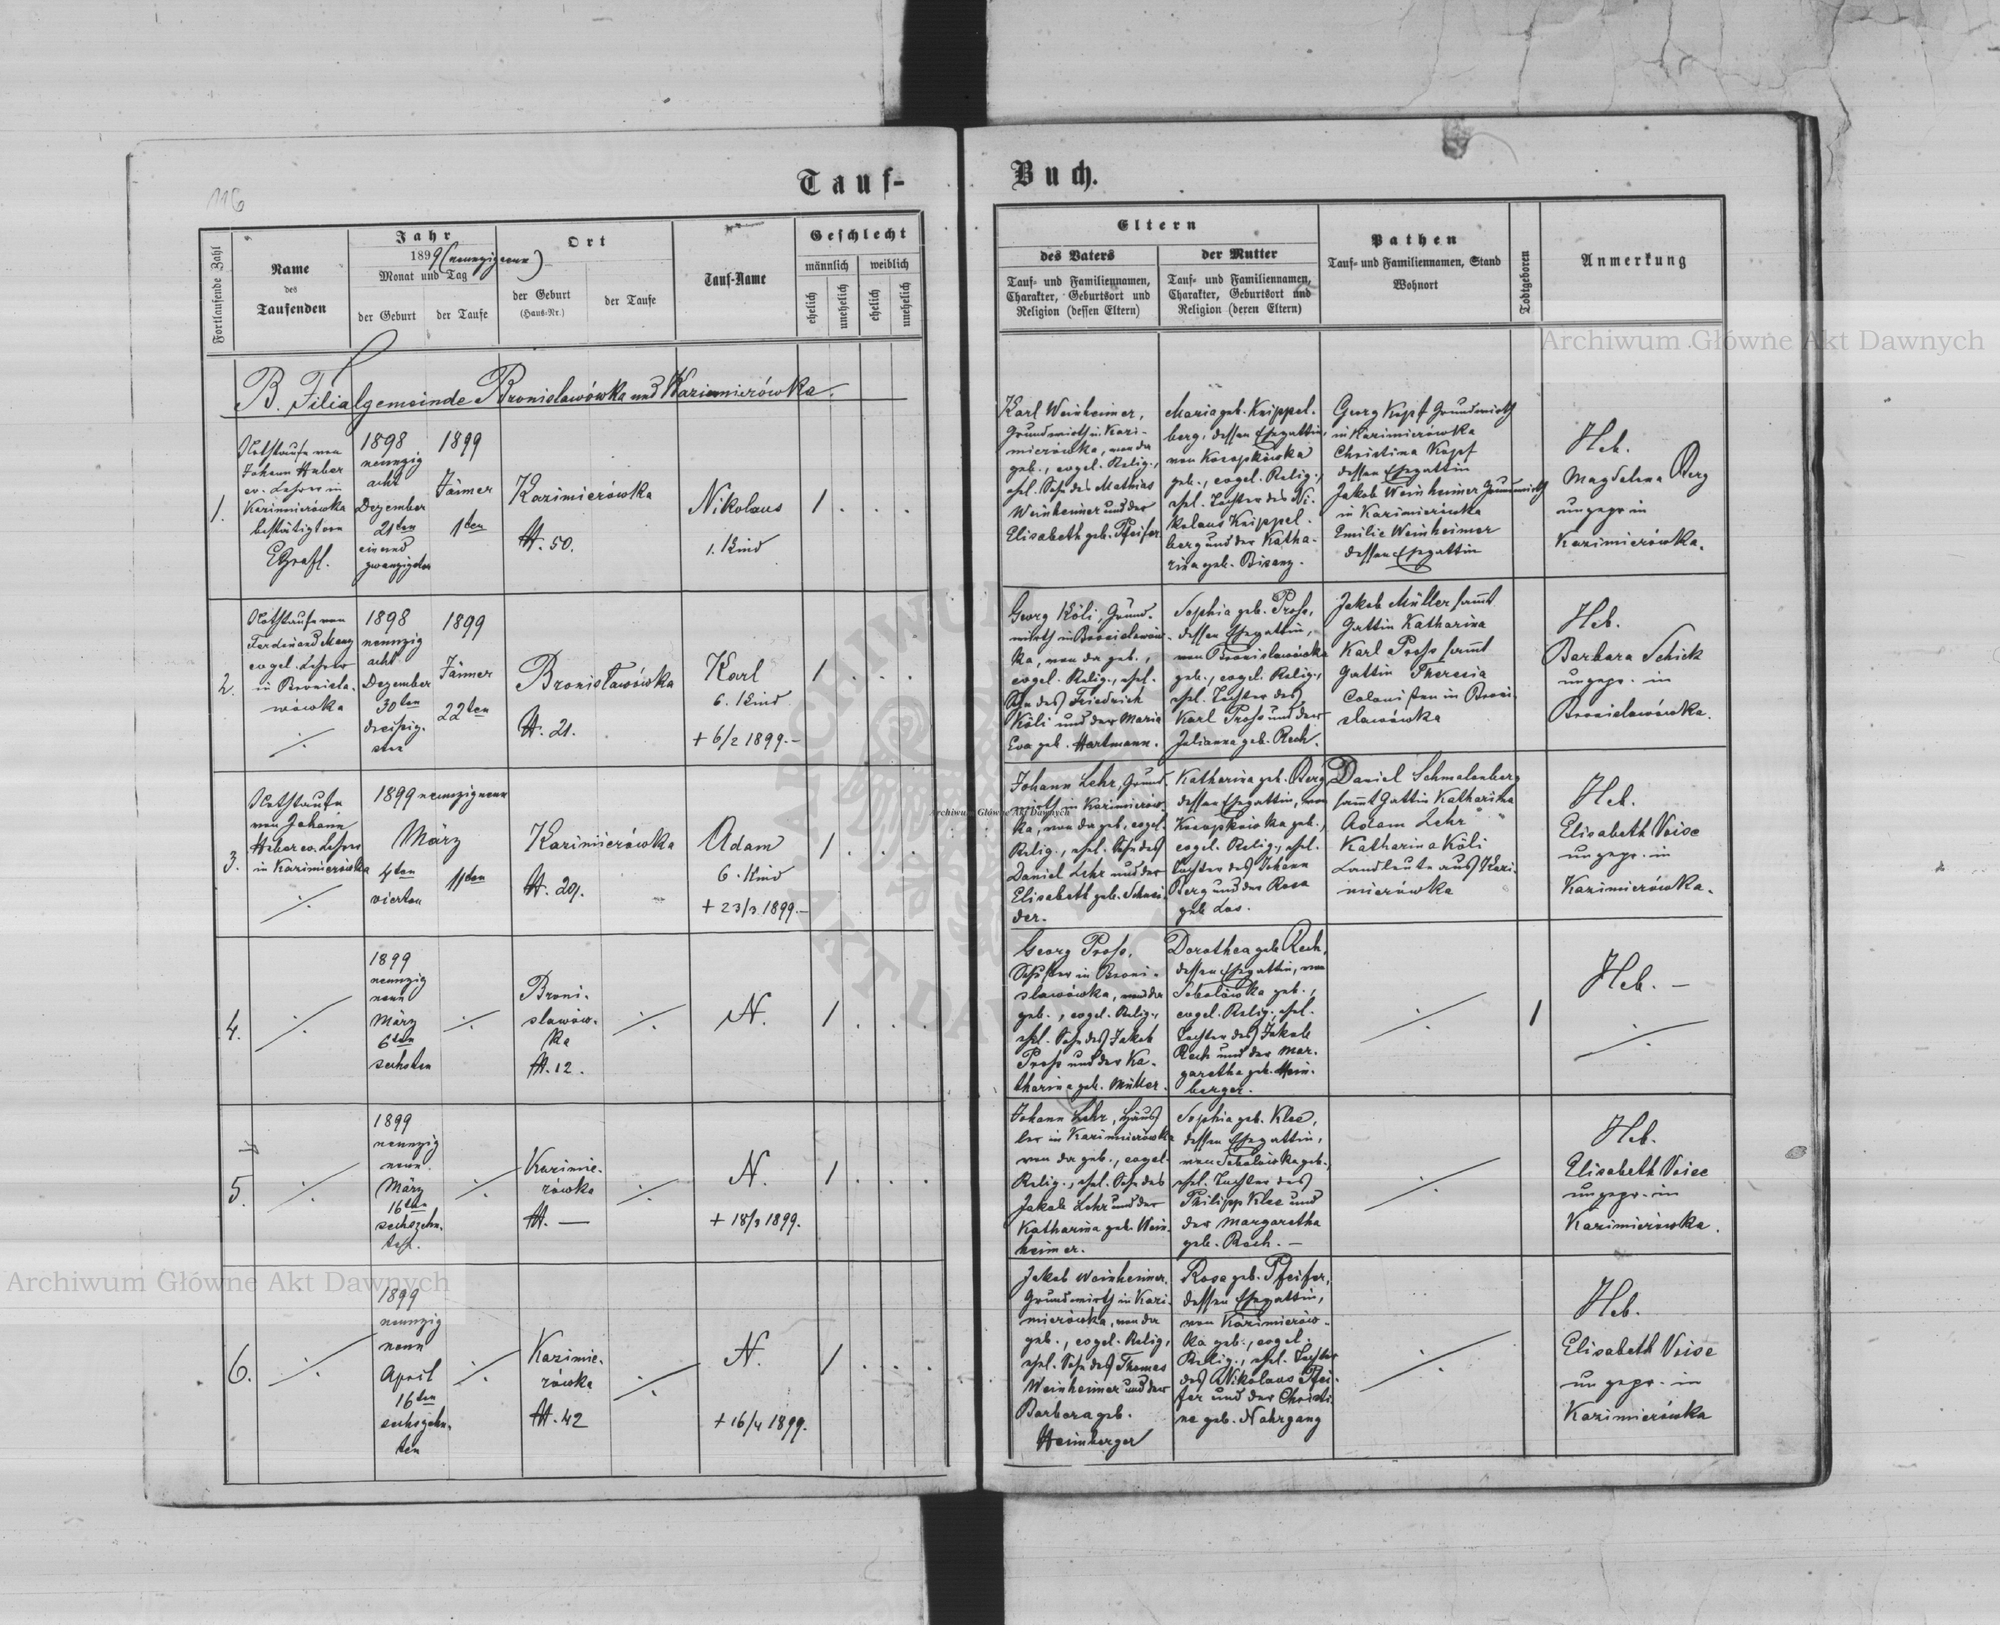 116
Tauf-
Buch.
Fortlaufende Zahl
Name
des
Taufenden
Jahr
1899 (neunzigneun)
Monat und Tag
der Geburt
der Taufe
Ort
der Geburt
(Haus-Nr.)
der Taufe
Tauf-Name
Geschlecht
männlich
weiblich
ehelich
unehelich
ehelich
unehelich
Eltern
des Vaters
Tauf- und Familiennamen,
Charakter, Geburtsort und
Religion (dessen Eltern)
der Mutter
Tauf- und Familiennamen,
Charakter, Geburtsort und
Religion (deren Eltern)
Pathen
Tauf- und Familiennamen, Stand
Wohnort
Todtgeboren
Anmerkung
B. Filialgemeinde Bronislawówka und Kazimierówka.
1.
Nothtaufe von
Johann Huber
ev. Lehrer in
Kazimierówka
bestätigt von
1898
neunzig
acht
Dezember
21ten
ein und
zwanzigsten
1899
Jänner
1ten
Kazimierówka
H. 50.
Nikolaus
1. Kind
1
Karl Weinheimer,
Grundwirth in Kazi-
mierówka, von da
geb., evgel. Relig.,
ehel. Sohn des Mathias
Weinheimer und der
Elisabeth geb. Pfeifer
Maria geb. Knippel-
berg, dessen Ehegattin,
von Kosopkówka
geb., evgel. Relig.,
ehel. Tochter des Ni-
kolaus Knippel-
berg und der Katha-
rina geb. Bisanz.
Georg Kopf Grundwirth
in Kazimierówka
Christina Kopf
dessen Ehegattin
Jakob Weinheimer Grundwirth
in Kazimierówka
Emilie Weinheimer
dessen Ehegattin
Heb.
Magdalena Berg
ungepr in
Kazimierówka.
2.
Nothtaufe von
Ferdinand Manz
evgel. Lehrer
in Bronisla-
wówka
1898
neunzig
acht
Dezember
30ten
dreißig-
sten
1899
Jänner
22ten
Bronisławówka
H. 21.
Karl
6. Kind
+ 6/2 1899.-
1
Georg Köli, Grund-
wirth in Bronislawów-
ka, von da geb.,
evgel. Relig., ehel.
Sohn des Friedrich
Köli und der Maria
Eva geb. Hartmann.
Sophia geb. Pross,
dessen Ehegattin,
von Bronislawówka
geb., evgel. Relig.,
ehel. Tochter des
Karl Pross und der
Julianna geb. Rech.
Jakob Müller sammt
Gattin Katharina
Karl Pross sammt
Gattin Theresia
Colonisten in Broni-
slawówka
Heb.
Barbara Schick
ungepr. in
Bronislawówka.
3.
Nothtaufe
von Johann
Huber ev. Lehrer
in Kazimierówka
1899 neunzigneun
März
4ten
vierten
11ten
Kazimierówka
H. 29.
Adam
6. Kind
+ 23/3 1899.-
1
Johann Lehr, Grund-
wirth in Kazimierów-
ka, von da geb., evgel.
Relig., ehel. Sohn des
Daniel Lehr und der
Elisabeth geb. Schnei-
der.
Katharina geb. Berg,
dessen Ehegattin, von
Kosopkówka geb.,
evgel. Relig., ehel.
Tochter des Johann
Berg und der Rosa
geb. Las.
Daniel Schmalenberg
sammt Gattin Katharina
Adam Lehr
Katharina Köli
Landleute aus Kazi-
mierówka
Heb.
Elisabeth Voise
ungepr. in
Kazimierówka.
4.
1899
neunzig
neun
März
6ten
sechsten
Broni-
slawów-
ka
H. 12.
N.
1
Georg Pross,
Schuster in Broni-
slawówka, von da
geb., evgel. Relig.,
ehel. Sohn des Jakob
Pross und der Ka-
tharina geb. Müller.
Dorothea geb. Rech,
dessen Ehegattin, von
Sokolówka geb.,
evgel. Relig., ehel.
Tochter des Jakob
Rech und der Mar-
garetha geb. Heim-
berger.
1
Heb. -
5.
1899
neunzig
neun
März
16ten
sechszehn-
ten.
Kazimie-
rówka
H. —
N.
+ 18/3 1899.
1
Johann Lehr, Häus-
ler in Kazimierówka
von da geb., evgel.
Relig., ehel. Sohn des
Jakob Lehr und der
Katharina geb. Wein-
heimer.
Sophia geb. Klee,
dessen Ehegattin,
von Sokolówka geb.,
ehel. Tochter des
Philipp Klee und
der Margaretha
geb. Rech. —
Heb.
Elisabeth Voise
ungepr. in
Kazimierówka.
6.
1899
neunzig
neun
April
16ten
sechszehn-
ten
Kazimie-
rówka
H. 42
N.
+ 16/4 1899.
1
Jakob Weinheimer,
Grundwirth in Kazi-
mierówka, von da
geb., evgel. Relig.,
ehel. Sohn des Thomas
Weinheimer und der
Barbara geb.
Heimberger
Rosa geb. Pfeifer,
dessen Ehegattin,
von Kazimierów-
ka geb., evgel.
Relig., ehel. Tochter
des Nikolaus Pfei-
fer und der Christi-
ne geb. Nahrgang
Heb.
Elisabeth Voise
ungepr. in
Kazimierówka
Archiwum Główne Akt Dawnych
Archiwum Główne Akt Dawnych
Archiwum Główne Akt Dawnych